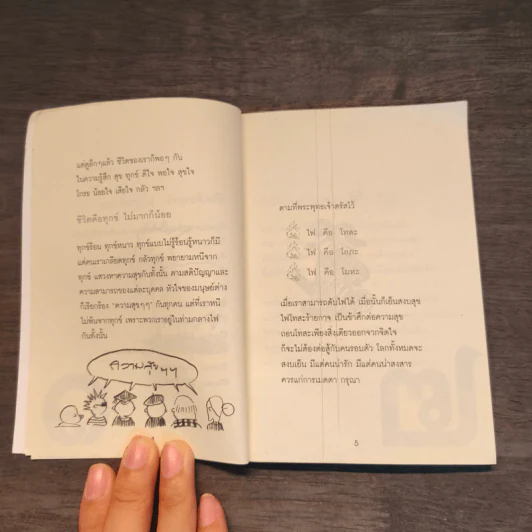 แต่ดูลึกๆแล้ว ชีวิตของเราก็พอๆ กัน
ในความรู้สึก สุข ทุกข์ ดีใจ พอใจ สุขใจ
โกรธ น้อยใจ เสียใจ กลัว ฯลฯ
ชีวิตคือทุกข์ ไม่มากก็น้อย
ทุกข์ร้อน ทุกข์หนาว ทุกข์แบบไม่รู้ร้อนรู้หนาวก็มี
แต่คนเราเกลียดทุกข์ กลัวทุกข์ พยายามหนีจาก
ทุกข์ แสวงหาความสุขกันทั้งนั้น ตามสติปัญญาและ
ความสามารถของแต่ละบุคคล หัวใจของมนุษย์ต่าง
ก็เรียกร้อง "ความสุขๆๆ" กันทุกคน แต่ที่เราหนี
ไม่พ้นจากทุกข์ เพราะพวกเราอยู่ในท่ามกลางไฟ
กันทั้งนั้น
ความสุขๆๆ
ตามที่พระพุทธเจ้าตรัสไว้
ไฟ คือ โทสะ
ไฟ คือ โลภะ
ไฟ คือ โมหะ
เมื่อเราสามารถดับไฟได้ เมื่อนั้นก็เย็นสงบสุข
ไฟโทสะร้ายกาจ เป็นข้าศึกต่อความสุข
ถอนโทสะเพียงสิ่งเดียวออกจากจิตใจ
ก็จะไม่ต้องต่อสู้กับคนรอบตัว โลกทั้งหมดจะ
สงบเย็น มีแต่คนน่ารัก มีแต่คนน่าสงสาร
ควรแก่การเมตตา กรุณา
5